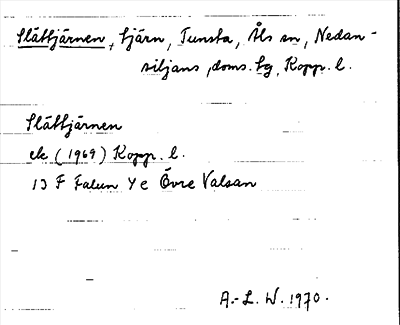 Slättjärnen, tjärn, Tunsta, Åls sn, Nedan-
siljans doms. tg, Kopp. l.
Slättjärnen
ek (1969) Kopp. l.
13 F Falun 4 e Övre Valsan
A.-L. W. 1970.